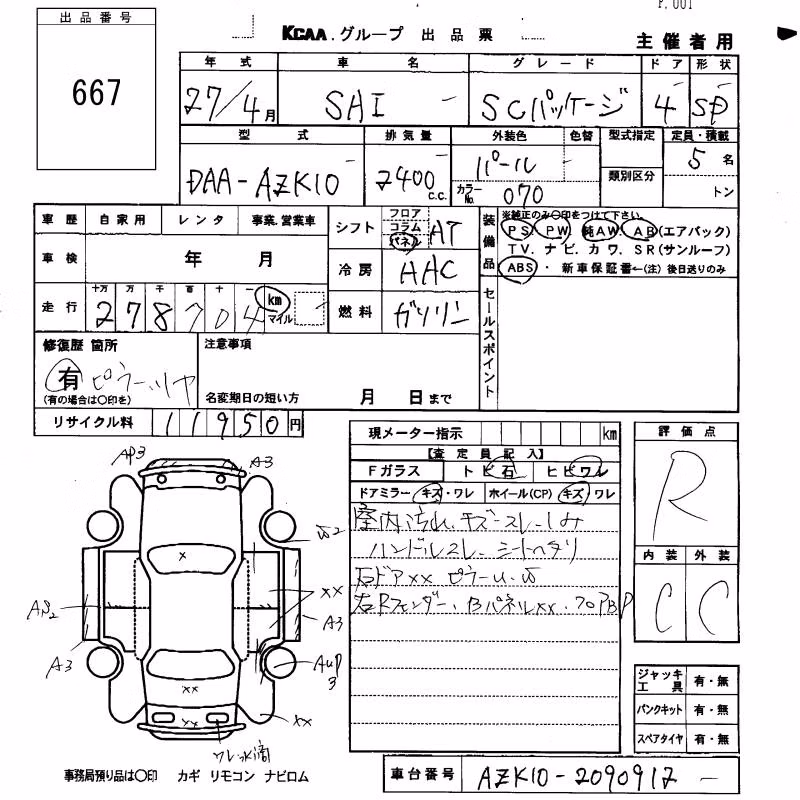 P.001
出品番号
667
KCAA.グループ 出品票
主催者用
年式 車名 グレード ドア 形状
27/4月 SAI SCパッケージ 4 SD
型式 排気量 外装色 色替 型式指定 定員・積載
DAA-AZK10 2400 c.c. パール 類別区分 5名
カラーNo. 070 トン
車歴 自家用 レンタ 事業.営業車
シフト フロア コラム パネル AT
装備品 ※純正のみ○印をつけて下さい。
PS PW 純AW AB(エアバック)
TV.ナビ.カワ.SR(サンルーフ)
ABS・新車保証書←(注)後日送りのみ
車検 年 月
冷房 AAC
走行 十万 万 千 百 十 一
278704 km マイル
燃料 ガソリン
セールスポイント
修復歴 箇所
有 ピラー、リヤ
(有の場合は○印を)
注意事項
名変期日の短い方 月 日まで
リサイクル料 11950円
現メーター指示 km
【査定員記入】
Fガラス トビ石 ヒビワレ
ドアミラー キズ・ワレ ホイール(CP) キズ ワレ
室内汚れ、キズ-スレ-しみ
ハンドルスレ シートヘタリ
右ドアxx ピラーu.
右Rフェンダー、Bパネルxx.
評価点
R
内装 外装
C C
AP3
A3
xx
A3
A3
xx
x
xx
xx
ワレ、水滴
ジャッキ工具 有・無
パンクキット 有・無
スペアタイヤ 有・無
事務局預り品は○印 カギ リモコン ナビロム
車台番号 AZK10-2090912